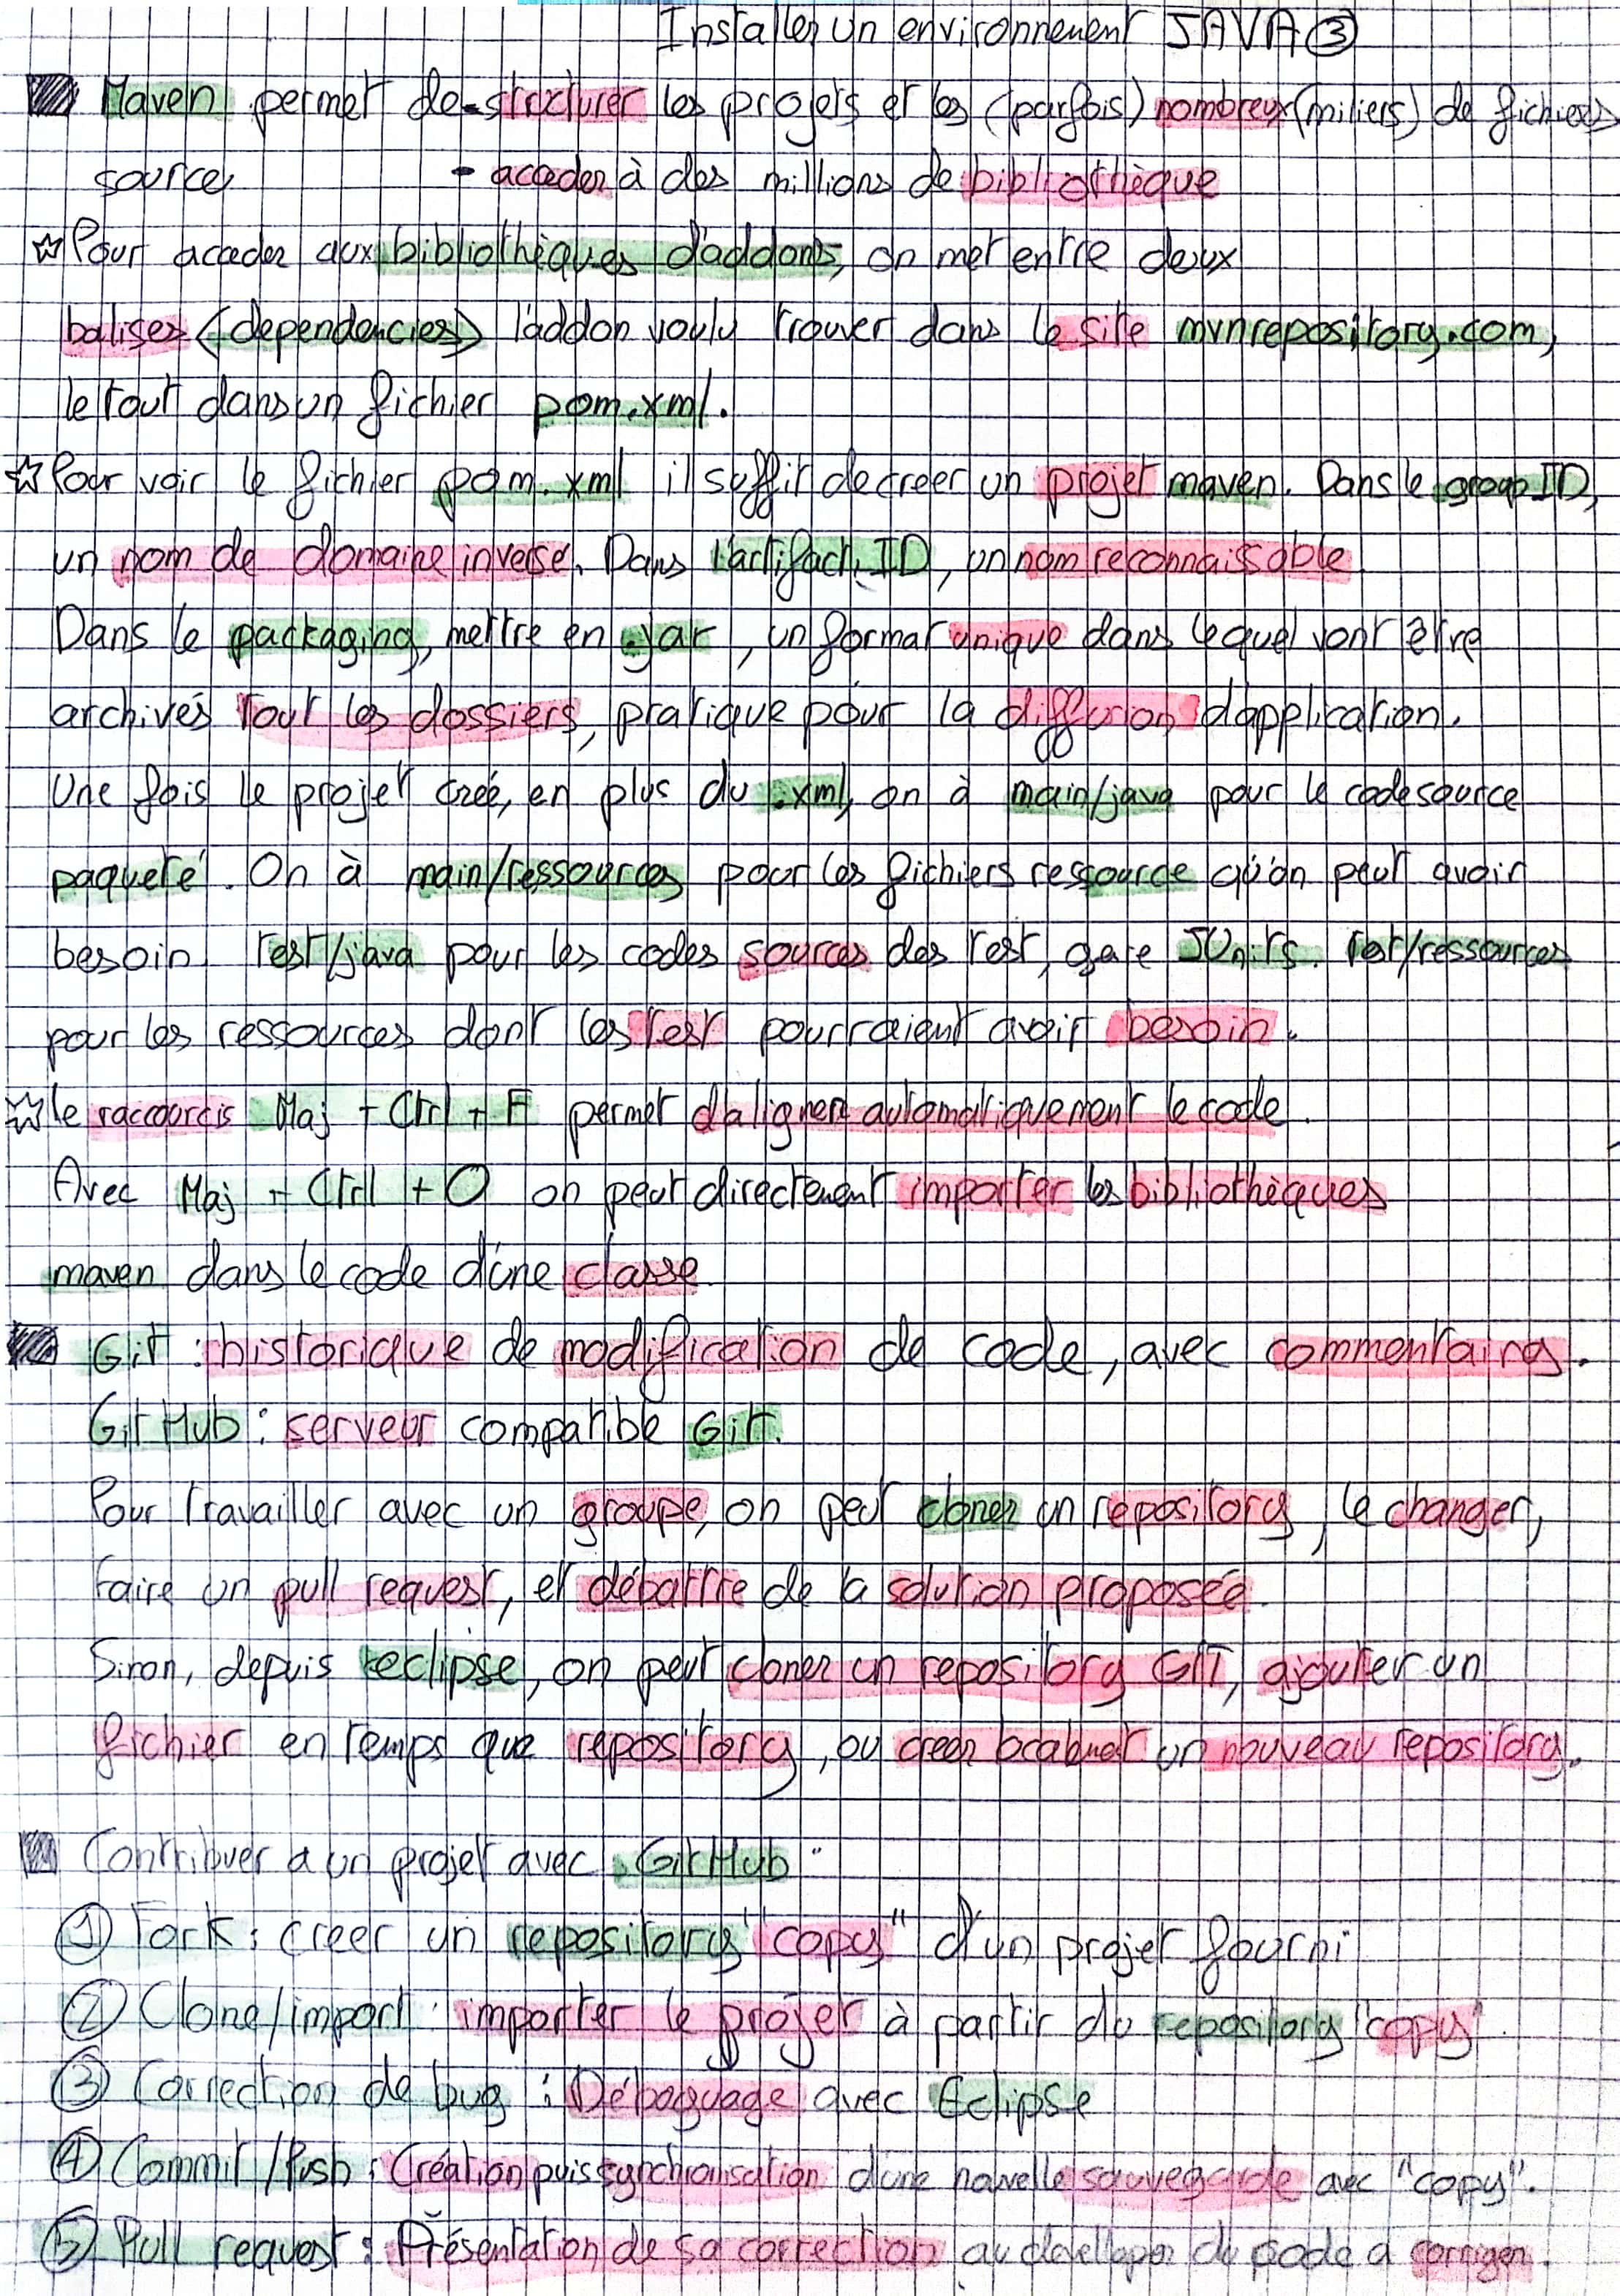 Installer un environnement JAVA ③
Maven permet de - structurer les projets et les (parfois) nombreux (miliers) de fichiers
source - acceder à des millions de bibliothèque
☆ Pour acceder aux bibliothèques d'addons, on met entre deux
balises <dependencies> l'addon voulu trouver dans le site mvnrepository.com,
le tout dans un fichier pom.xml.
☆ Pour voir le fichier pom.xml il suffit de creer un projet maven. Dans le group ID,
un nom de domaine inverse. Dans l'artifach ID, un nom reconnaissable
Dans le packaging, mettre en .jar, un format unique dans lequel vont être
archivés tout les dossiers, pratique pour la diffusion d'application.
Une fois le projet créé, en plus du .xml, on à main/java pour le code source
paqueté. On à main/ressources pour les fichiers ressource qu'on peut avoir
besoin test/java pour les codes sources des test, gare JUnits. Test/ressources
pour les ressources dont les test pourraient avoir besoin.
☆ le raccourcis Maj + Ctrl + F permet d'aligner automatiquement le code.
Avec Maj + Ctrl + O on peut directement importer les bibliothèques
maven dans le code d'une classe
Git : historique de modification de code, avec commentaires.
GitHub : serveur compatible Git.
Pour travailler avec un groupe, on peut cloner un repository, le changer,
faire un pull request, et débattre de la solution proposée.
Sinon, depuis eclipse, on peut cloner un repository GIT, ajouter un
fichier en temps que repository, ou creer un nouveau repository.
Contribuer a un projet avec GitHub :
① Fork : creer un repository "copy" d'un projet fourni
② Clone/import : importer le projet à partir du repository "copy".
③ Correction de bug : Déboguage avec Eclipse
④ Commit/Push : Création puis synchronisation d'une nouvelle sauvegarde avec "copy".
⑤ Pull request : Présentation de sa correction au developer du code a corriger.